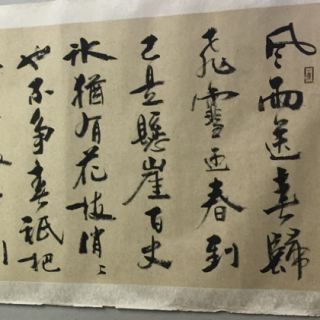 風雨送春歸
飛雪迎春到
已是懸崖百丈
冰猶有花枝俏〻
也不争春祇把